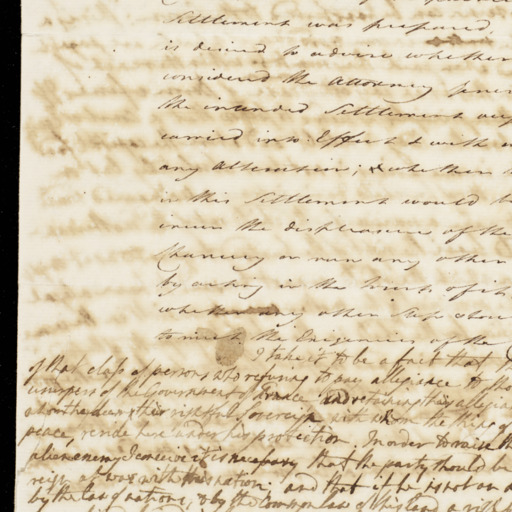 Settlement was prepared
is desired to advise whether
considered the Attorney
the intended Settlement
carried into Effect & with
any Alteration; & whether
in this Settlement would
incur the displeasure of the
Chancery or run any other
by acting in the trusts of
whether any other
to meet the Exigencies of the
I take it to be a fact that
of that class of persons who refusing to owe allegiance to
usurpers of the Government of France and retaining his
his rightful sovereign with whom the King of
peace, reside here under his protection. In order to the
alien enemy I conceive it is necessary that the party should be
at war with this nation. and that if he is not an
by the law of nations, & by the Common law of this land a